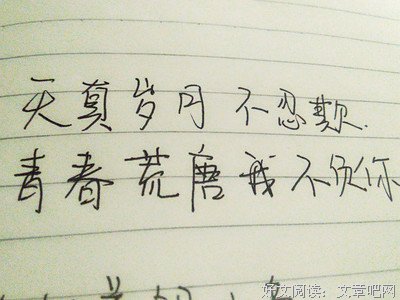 天真岁月不忍欺
青春荒唐我不负你
好文阅读：文章吧网